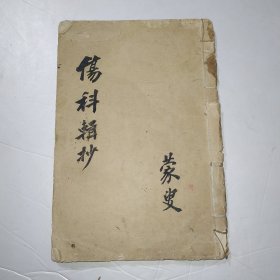 傷科輯抄
蒙叟